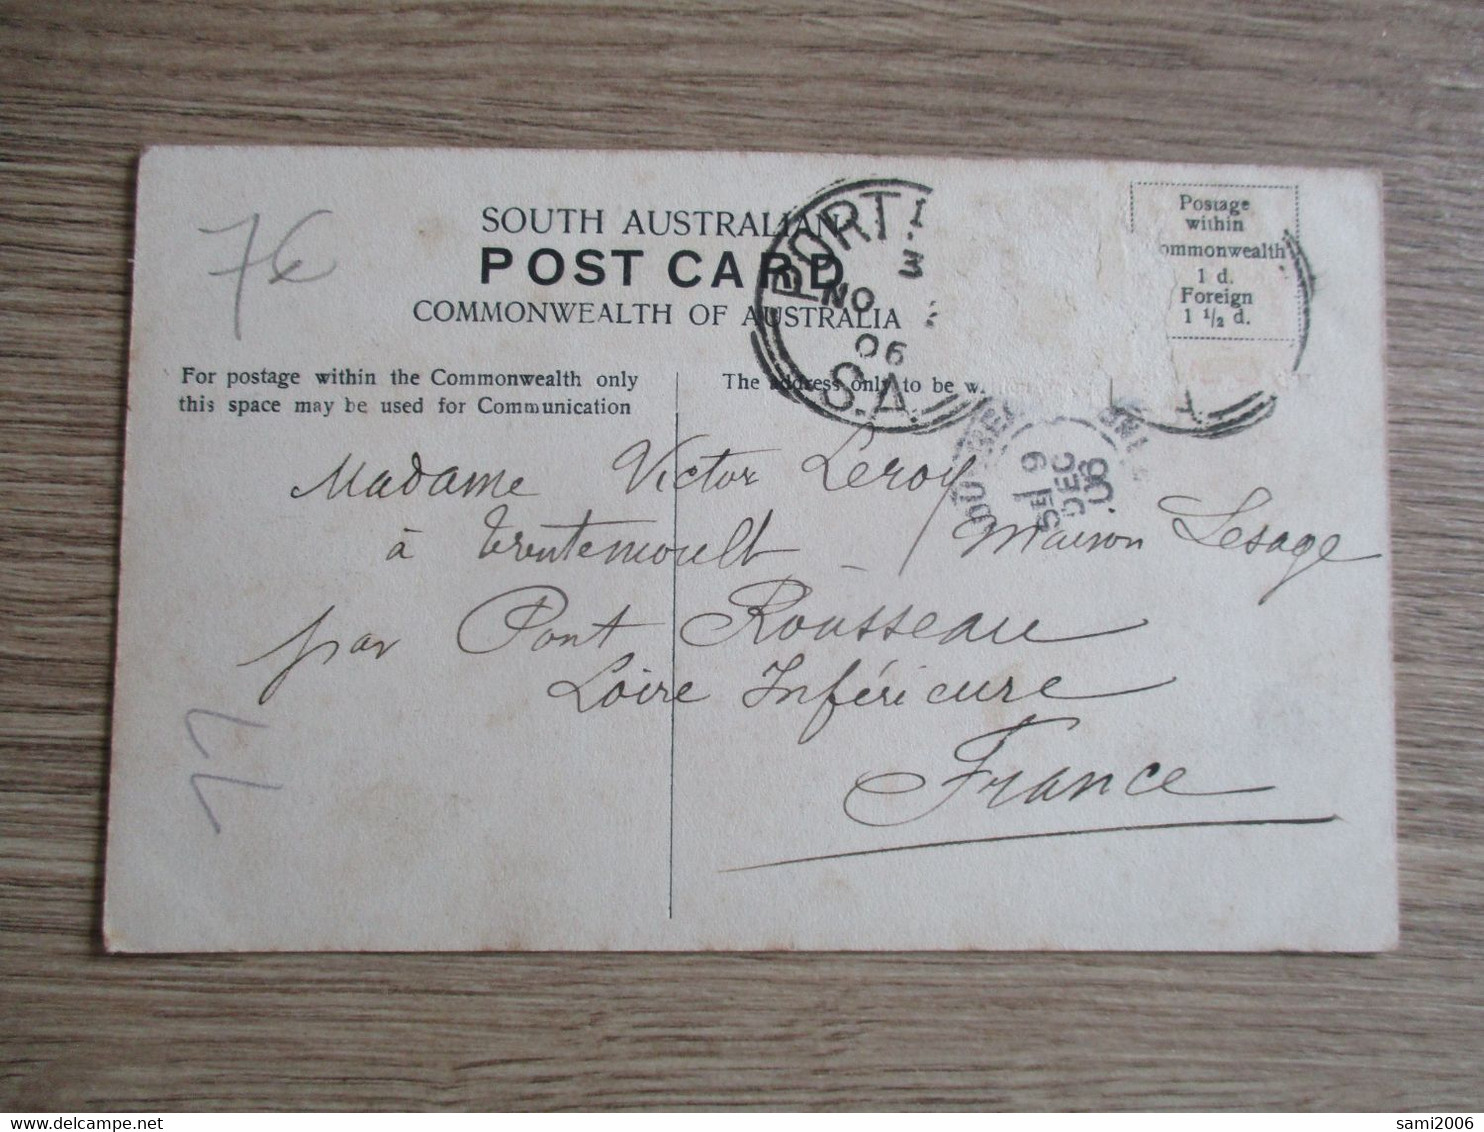 SOUTH AUSTRALIAN
POST CARD
COMMONWEALTH OF AUSTRALIA
For postage within the Commonwealth only
this space may be used for Communication
The address only to be w
Postage
within
ommonwealth
1 d.
Foreign
1 1/2 d.
PORT
NO
06
S.A.
9
DEC
06
7€
Madame Victor Leroy
à Trentemoult - / maison Lesage
par Pont Rousseau
Loire Inférieure
France
11
sami2006